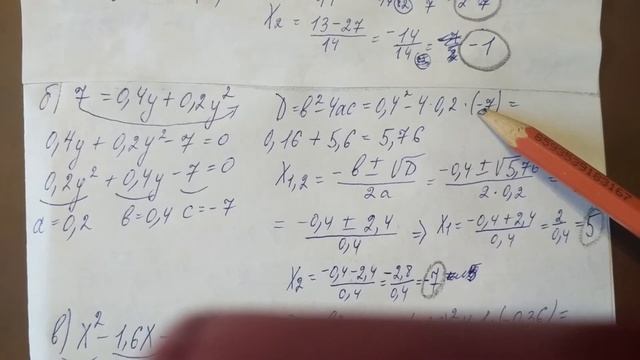 X₂ = (13-27)/14 = -14/14 = -1
б) 7 = 0,4y + 0,2y²
0,4y + 0,2y² - 7 = 0
0,2y² + 0,4y - 7 = 0
a = 0,2 в = 0,4 c = -7
D = в² - 4ac = 0,4² - 4·0,2·(-7) =
0,16 + 5,6 = 5,76
X₁,₂ = (-в ± √D)/2a = (-0,4 ± √5,76)/(2·0,2) =
= (-0,4 ± 2,4)/0,4 ⇒ X₁ = (-0,4+2,4)/0,4 = 2/0,4 = 5
X₂ = (-0,4-2,4)/0,4 = -2,8/0,4 = -7
в) X² - 1,6X -